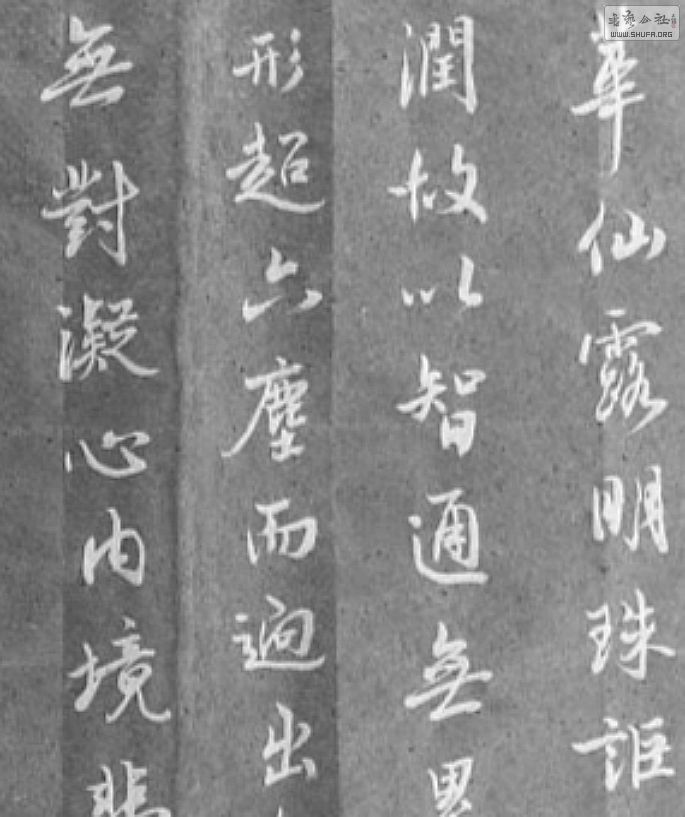 華仙露明珠詎
潤故以智通無累
形超六塵而迥出
無對凝心内境悲
書藝公社
WWW.SHUFA.ORG